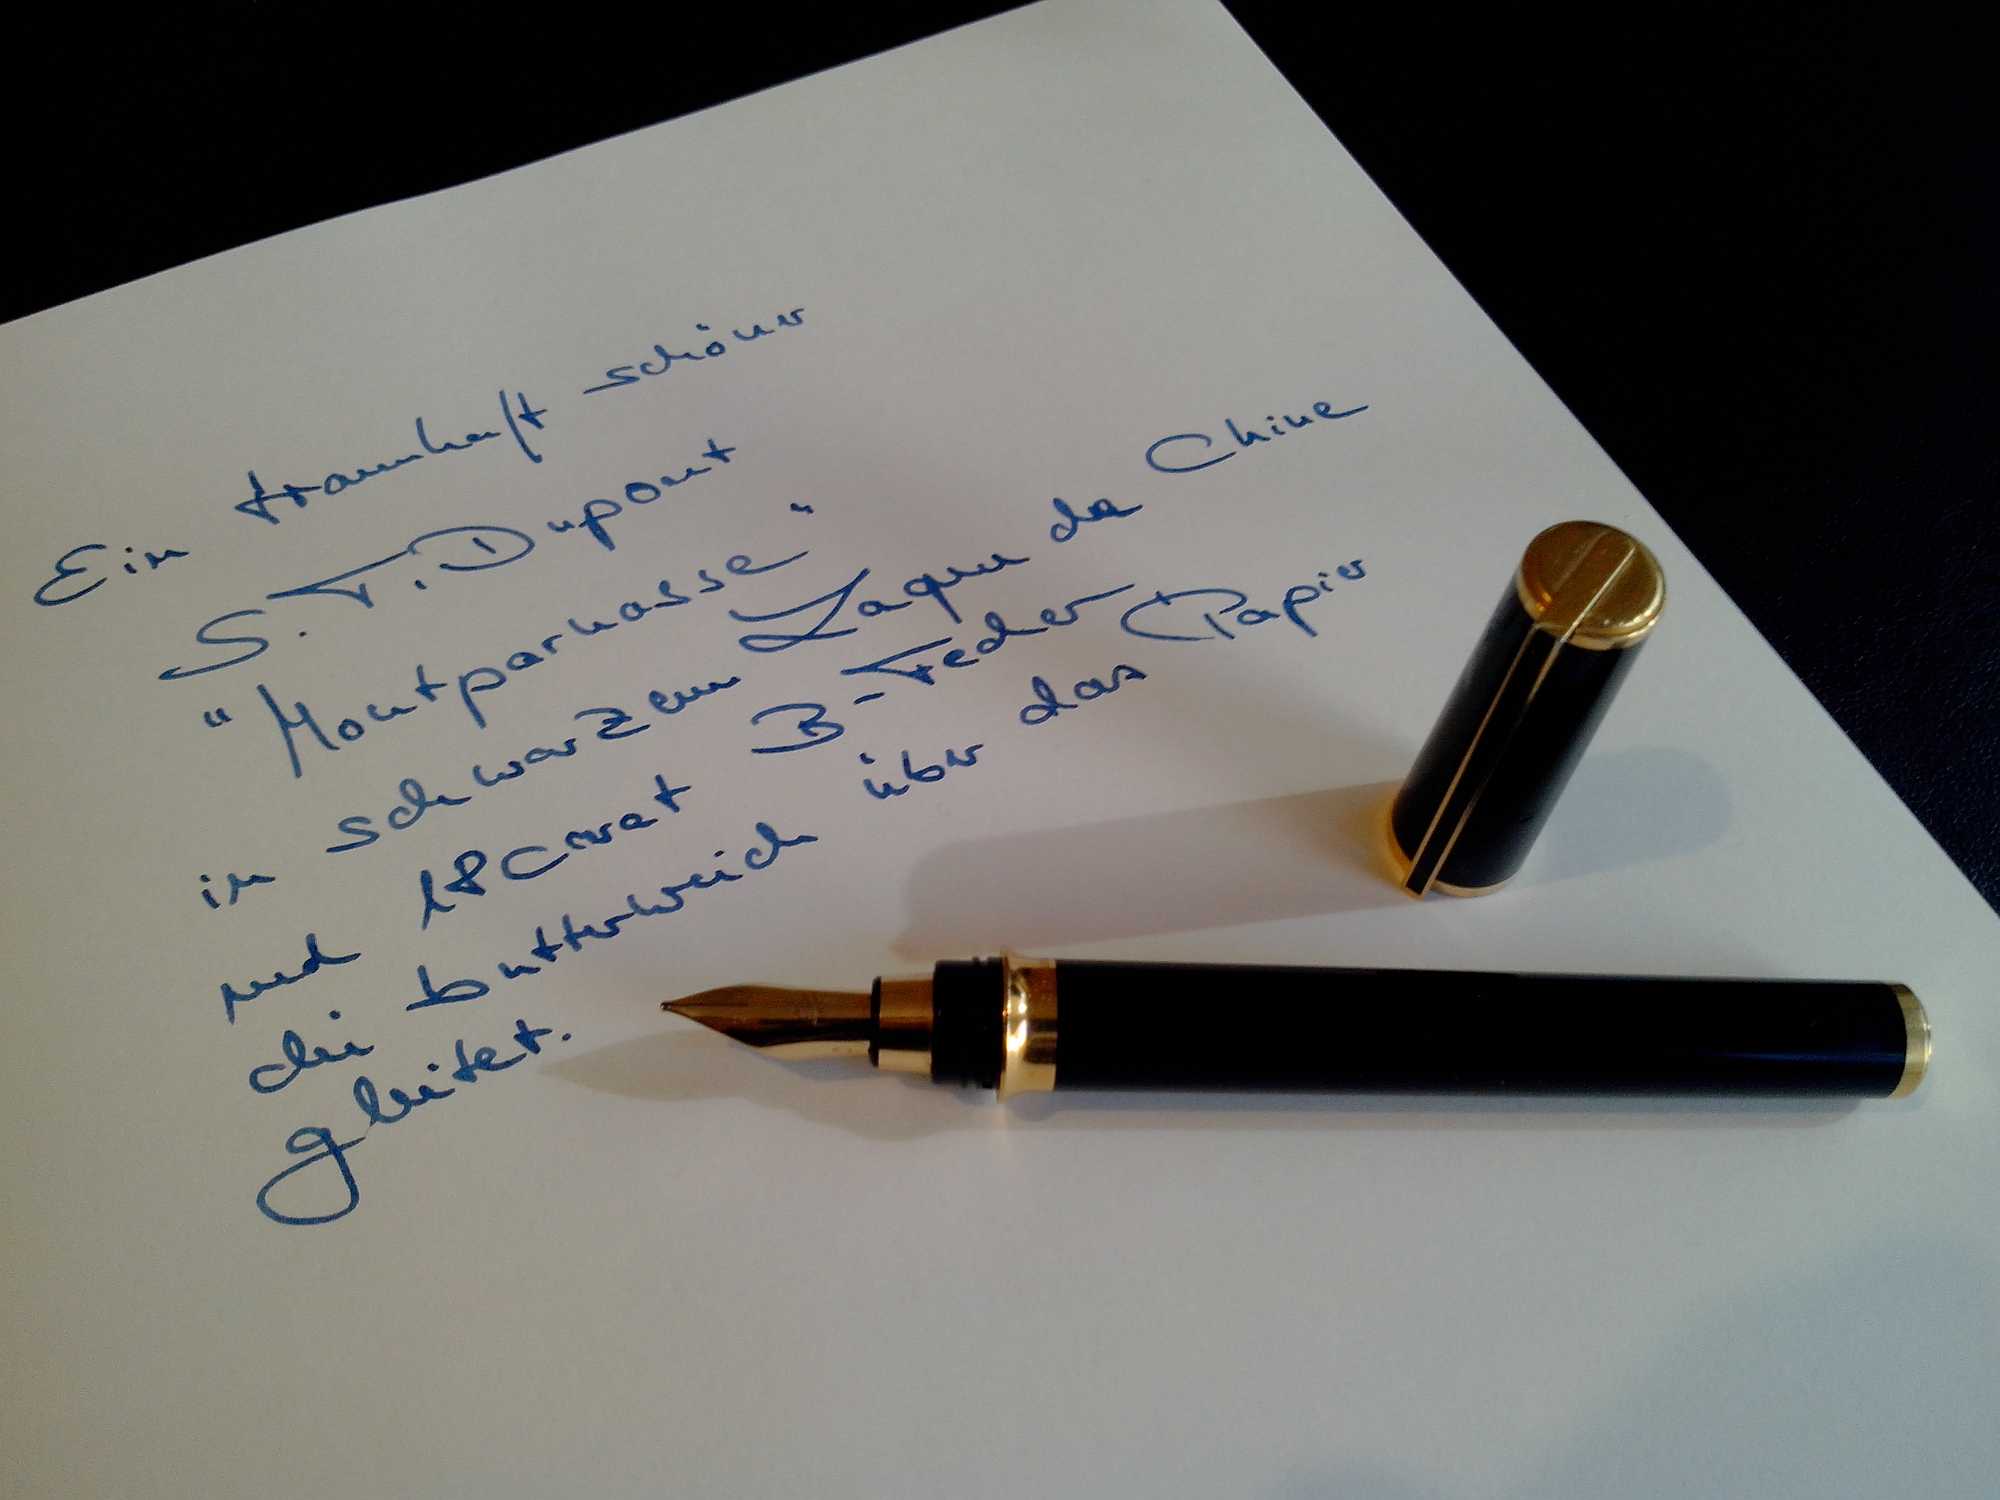 Ein traumhaft schöner
S.T. Dupont
"Montparnasse"
in schwarzem Laque de Chine
und 18 Carat B-Feder
die butterweich über das Papier
gleitet.